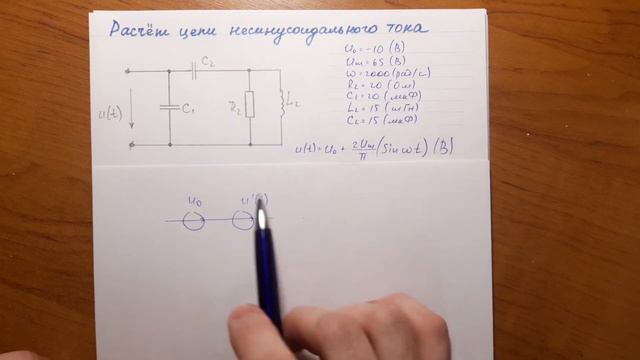 Расчёт цепи несинусоидального тока
U₀ = -10 (В)
Um = 65 (В)
ω = 2000 (рад/с)
R₂ = 20 (Ом)
C₁ = 20 (мкФ)
L₂ = 15 (мГн)
C₂ = 15 (мкФ)
C₂
u(t)
C₁
R₂
L₂
u(t) = U₀ + 2Um/π (sin ωt) (В)
U₀